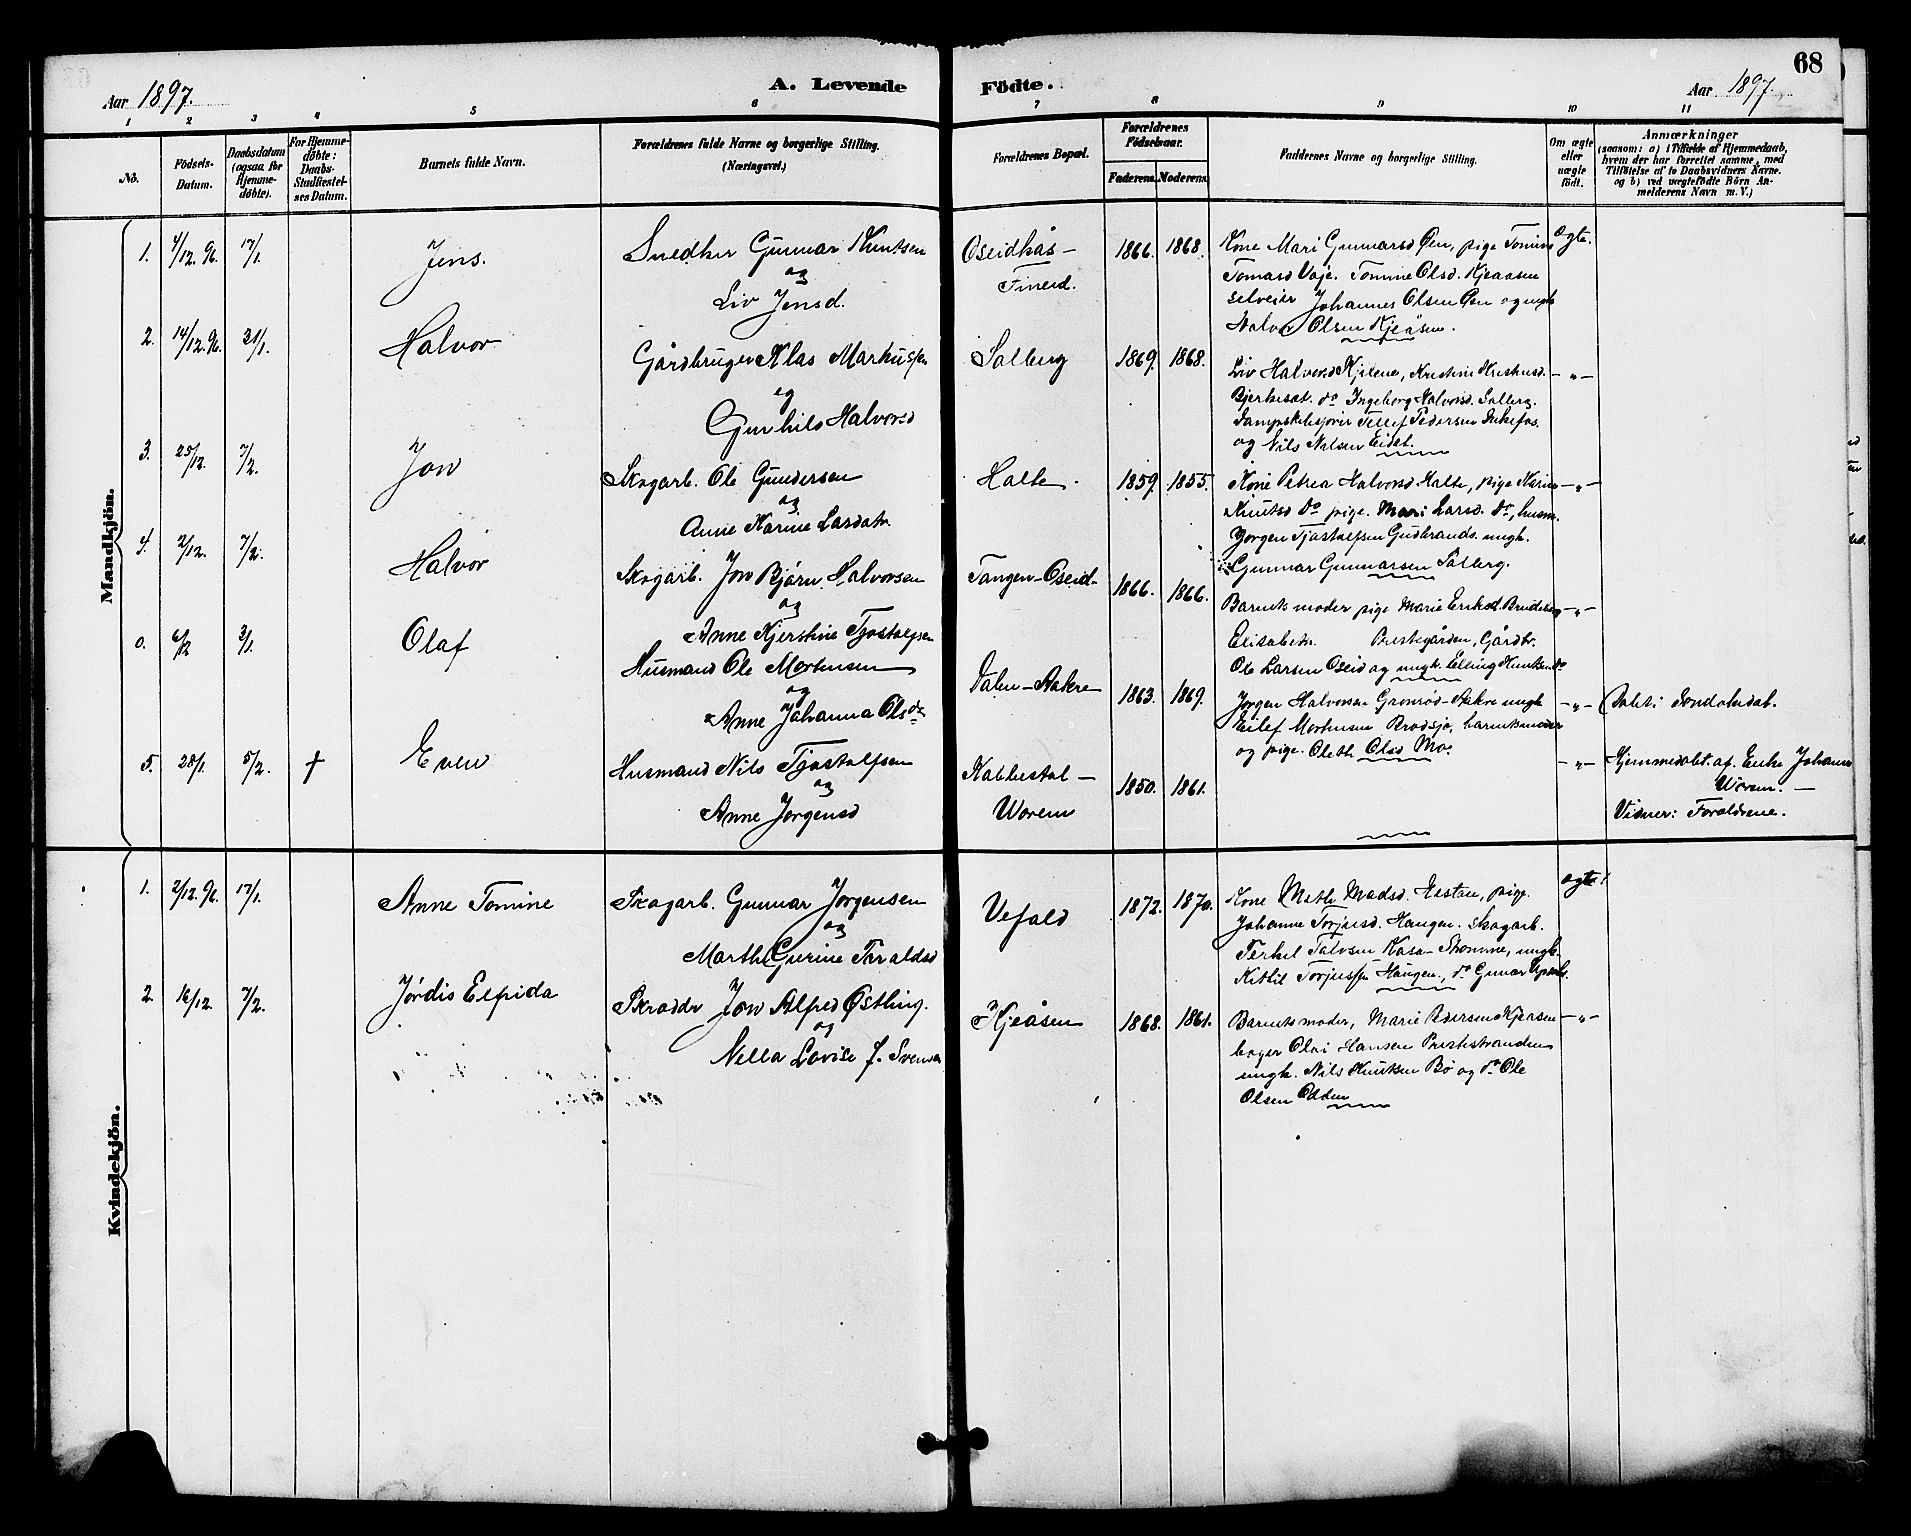 68
Aar 1897.
A. Levende Födte.
Aar 1897.
1 2 3 4 5 6 7 8 9 10 11
No.
Födsels-
Datum.
Daabsdatum
(ogsaa for
Hjemme-
døbte).
For Hjemme-
døbte:
Daabs-
Stadfæstel-
ses Datum.
Barnets fulde Navn.
Forældrenes fulde Navne og borgerlige Stilling.
(Næringsvei.)
Forældrenes Bopæl.
Forældrenes
Födselsaar.
Faderens. Moderens.
Faddernes Navne og borgerlige Stilling.
Om ægte
eller
uægte
födt.
Anmærkninger
(saasom: a) i Tilfælde af Hjemmedaab,
hvem der har forrettet samme, med
Tilföielse af to Daabsvidners Navne.
og b) ved uægtefödte Börn An-
melderens Navn m. V.)
Mandkjön.
1. 4/12.96. 17/1. Jens.
Snedker Gunnar Knutsen
og
Liv Jensd.
Oseidkås-
Fineid.
1866. 1868.
Kone Mari Gunnarsd Øen, pige Tomine
Tomasd Vaje. Tomine Olsd. Kjeaasen
selveier Johannes Olsen Øen og ungk
Halvor Olsen Kjeåsen.
Ægte.
2. 14/12.96. 31/1. Halvor
Gårdbruger Klas Markussen
og
Gunhild Halvorsd
Solberg
1869. 1868.
Liv Halvorsd Kjilene, Kristine
do Ingeborg Halvorsd. Solberg.
Tellef Pedersen
og Nils Nilsen Eidet.
-"-
3. 25/12. 7/2. Jon
Skogarb. Ole Gundersen
og
Anne Karine Larsdatr
Halte.
1859. 1855.
Kone Petrea Halvorsd Halte, pige Karine
Knutsd do pige. Mari Larsd. do, husm.
Jørgen Tjostolfsen Gudbrands. ungk.
Gunnar Gunnarsen Solberg.
-"-
4. 2/12. 7/2. Halvor
Skogarb. Jon Bjørn Halvorsen
og
Anne Kjerstine Tjostolfsen
Tangen-Oseid-
1866. 1866.
Barnets moder pige Marie Eriksd.
Elisabeth Prestegården, Gårdbr.
Ole Larsen Oseid og ungk. Elling Knutsen do
-"-
0. 6/12 3/1. Olaf
Husmand Ole Mortensen
og
Anne Johanna Olsdr
Dalen-Aakre
1863. 1869.
Jørgen Halvorsen Grønrød-Aakre ungk
Eilef Mortensen Brødsjø, barnets moder
og pige. Oleth. Olsd Mo.
-"-
(Døbt i Søndeledal.
5. 28/1. 5/2. † Even
Husmand Nils Tjostolfsen
og
Anne Jørgensd
Kabbestøl-
Worem
1850. 1861.
-"-
Hjemmedøbt. af. Enke Johanne
Worem.-
Vidner: Forældrene.
Kvindekjön.
1. 2/12.96. 17/1. Anne Tomine
Skogarb. Gunnar Jørgensen
og
Marthe Gurine Taraldsd
Vefald
1872. 1870.
Kone Mathe Madsd. Hestøen, pige.
Johanne Torjusd. Haugen. Skogarb.
Terkel Talvsen Kasa-Strømme, ungk.
Kittil Torjussen Haugen., do Gunar
ægte!
2. 16/12. 7/2. Jørdis Elfrida
Skrædder Jon Alfred Østling.
og
Nella Lovise f. Svensen
Kjeåsen
1868. 1861.
Barnets moder, Marie Pedersen Kjeåsen
bager Olai Hansen Prestestranden
ungk. Nils Knutsen Bø og do Ole
Olsen Odden
-"-